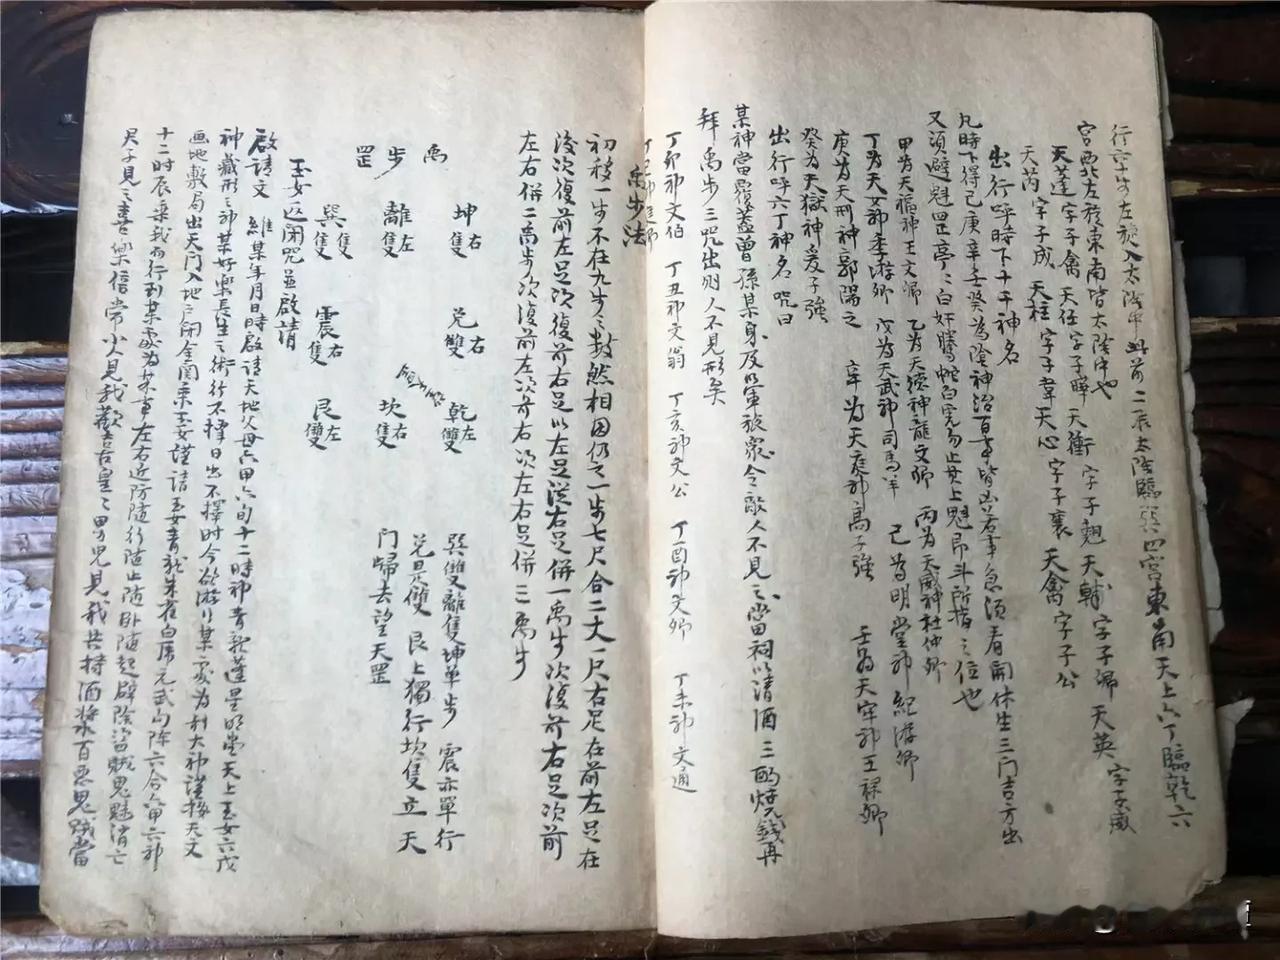 行六十步左旋入太陰中此前二辰太陰臨巽四宮東南天上六丁臨乾六
宮西北左旋東南皆太陰中也
天蓬字子禽 天任字子暉 天衝 字子翹 天輔 字子歸 天英 字子威
天芮 字子成 天柱 字子韋 天心 字子襄 天禽 字子公
出行呼時下十干神名
凡時下得己庚辛壬癸為陰神治百事皆凶若事急須看開休生三門吉方出
又須避魁罡亭亭白奸螣蛇白虎勿止其上魁即斗所指之位也
甲為天福神王文卿 乙為天德神龍文卿 丙為天威神杜仲卿
丁為天女神李游卿 戊為天武神司馬羊 己為明堂神紀游卿
庚為天刑神鄒陽之 辛為天庭神高子強 壬為天牢神王祿卿
癸為天獄神爰子強
出行呼六丁神名咒曰
某神當覆蓋曾孫某身及以軍旅眾令敵人不見之當祠以清酒三酌燒錢再
拜禹步三咒出則人不見形矣
丁卯神文伯 丁丑神文翁 丁亥神文公 丁酉神文卿 丁未神文通
丁巳神庭卿
禹步法
初移一步不在九步之數然相因仍之一步七尺合二丈一尺右足在前左足在
後次復前左足次復前右足以左足從右足併一禹步次復前右足次前
左右併二禹步次復前左次前右次左右足併三禹步
禹步罡
坤右隻 兌右雙 乾左雙
離左隻 坎右隻
巽隻隻 震右隻 艮左雙
巽雙離隻坤單步 震亦單行
兌是雙 艮上獨行坎隻立 天
門歸去望天罡
玉女返閉咒並啟請
啟請文 維某年月日時啟請天地父母六甲六旬十二時神青龍蓬星明堂天上玉女六戊
神藏形之神某好樂長生之術行不擇日出不擇時今欲游行某處為利大神謹按天文
画地敷局出天門入地戶閉金關乘玉女謹請玉女青龍朱雀白虎元武勾陣六合六甲六神
十二时辰乘我而行到某處為某事左右近防隨行隨止隨卧隨起辟除盜賊鬼魅消亡
君子見之喜樂倍常小人見我歡喜皇皇男兒見我共持酒漿百惡鬼賊當